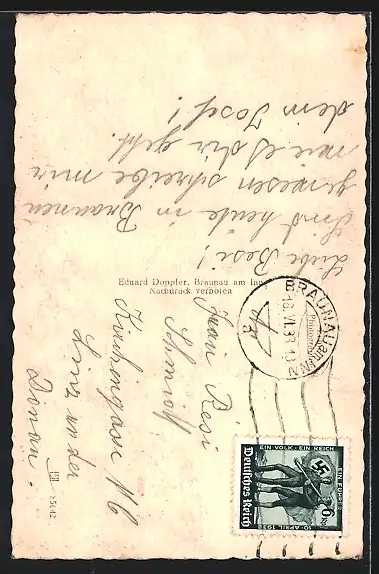 Liebe Resi!
Sind heute in Braunau
gewesen schreibe mir
wie es dir geht.
dein Josef!
Eduard Doppler, Braunau am Inn
Nachdruck verboten
Frau Resi
Schmidt
Kirchengasse
Linz an der
Donau.
85642
BRAUNAU am INN
18.VI.38
a
EIN VOLK · EIN REICH
EIN FÜHRER
10. APRIL 1938
Deutsches Reich
6